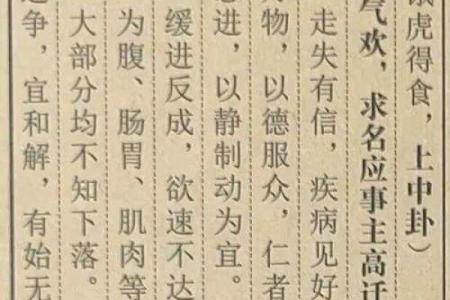 虎得食，上中卦）
气欢，求名应事主高迁
走失有信，疾病见好
物，以德服众，仁者
进，以静制动为宜。
缓进反成，欲速不达
为腹、肠胃、肌肉等
大部分均不知下落。
争，宜和解，有始无